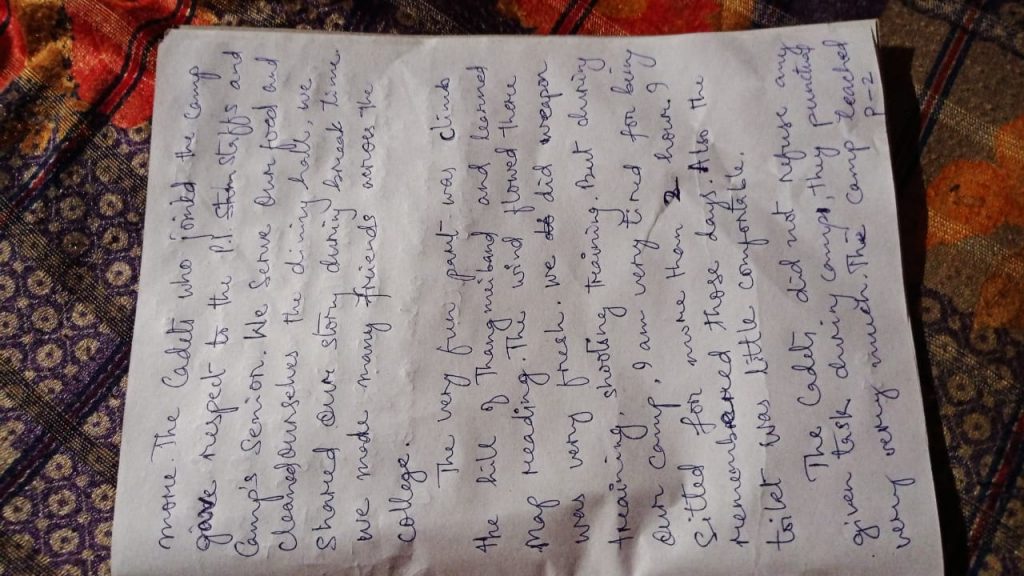 more. The Cadets who joined the camp
gave respect to the P.I staffs and
Camps Senior. We Serve our food and
cleaned ourselves the dining hall, we
shared our story during break time
we made many friends across the
college.
The very fun part was climb
the hill of Thangmiband and learned
Map reading. The wind flowed there
was very fresh. We did weapon
training, shooting training. But during
our camp, I am very tired for being
Sitted for more than 2 hours. I
remembered those days. Also the
toilet was little comfortable.
The Cadets did not refuse any
given task during camps, they punished
very very much. The camp teached
P-2